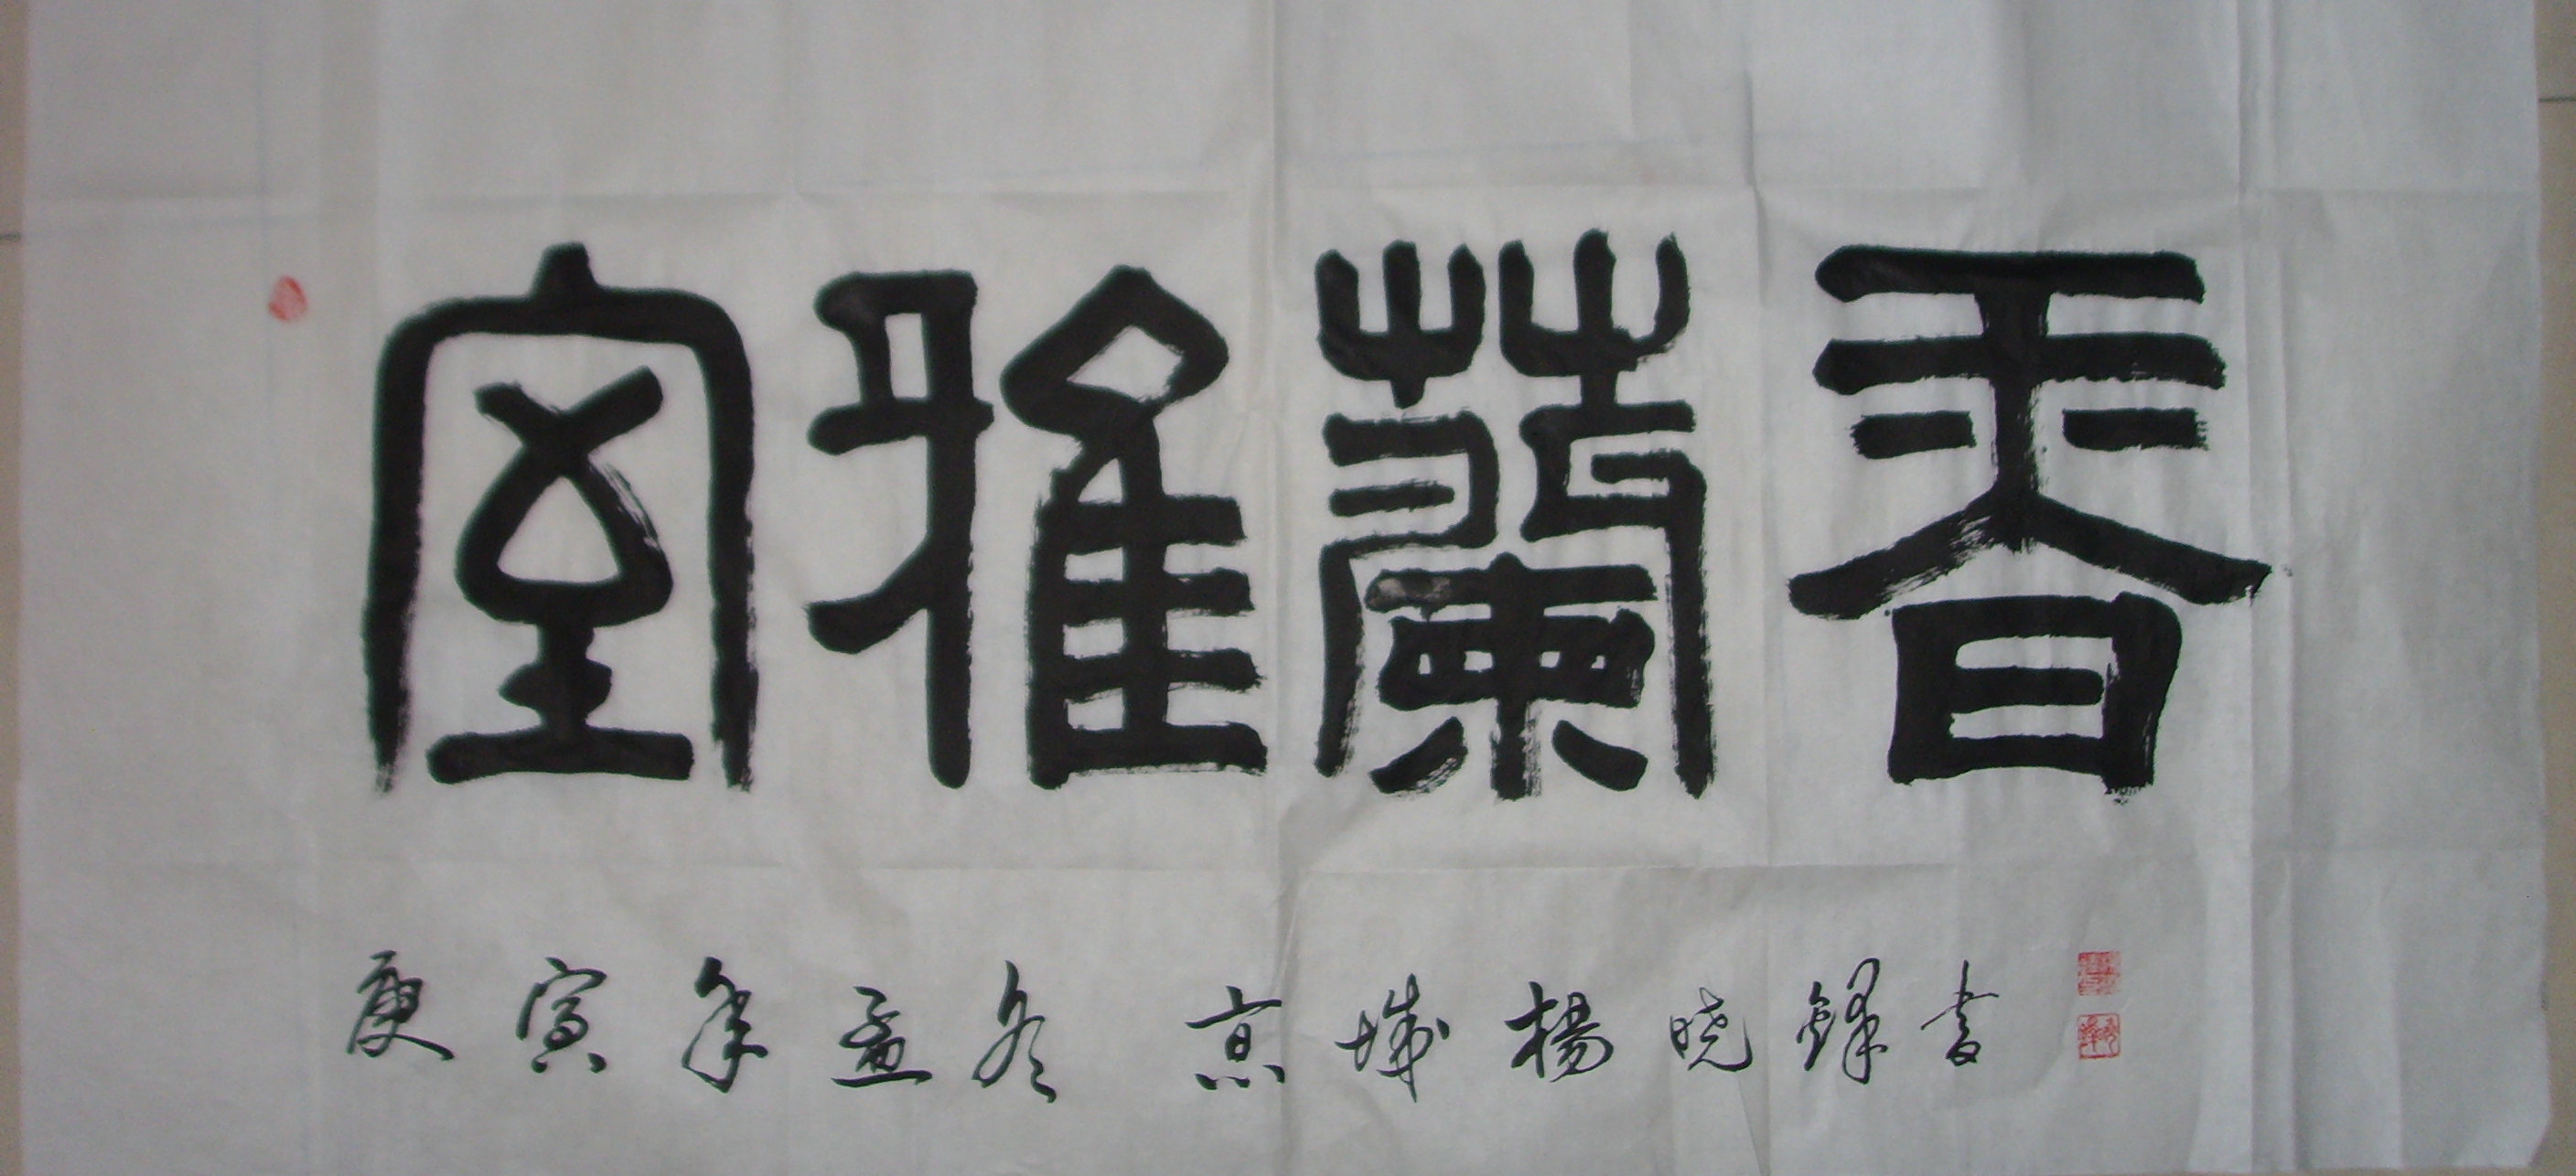 室雅蘭香
庚寅年孟冬 京城楊晓鋒書